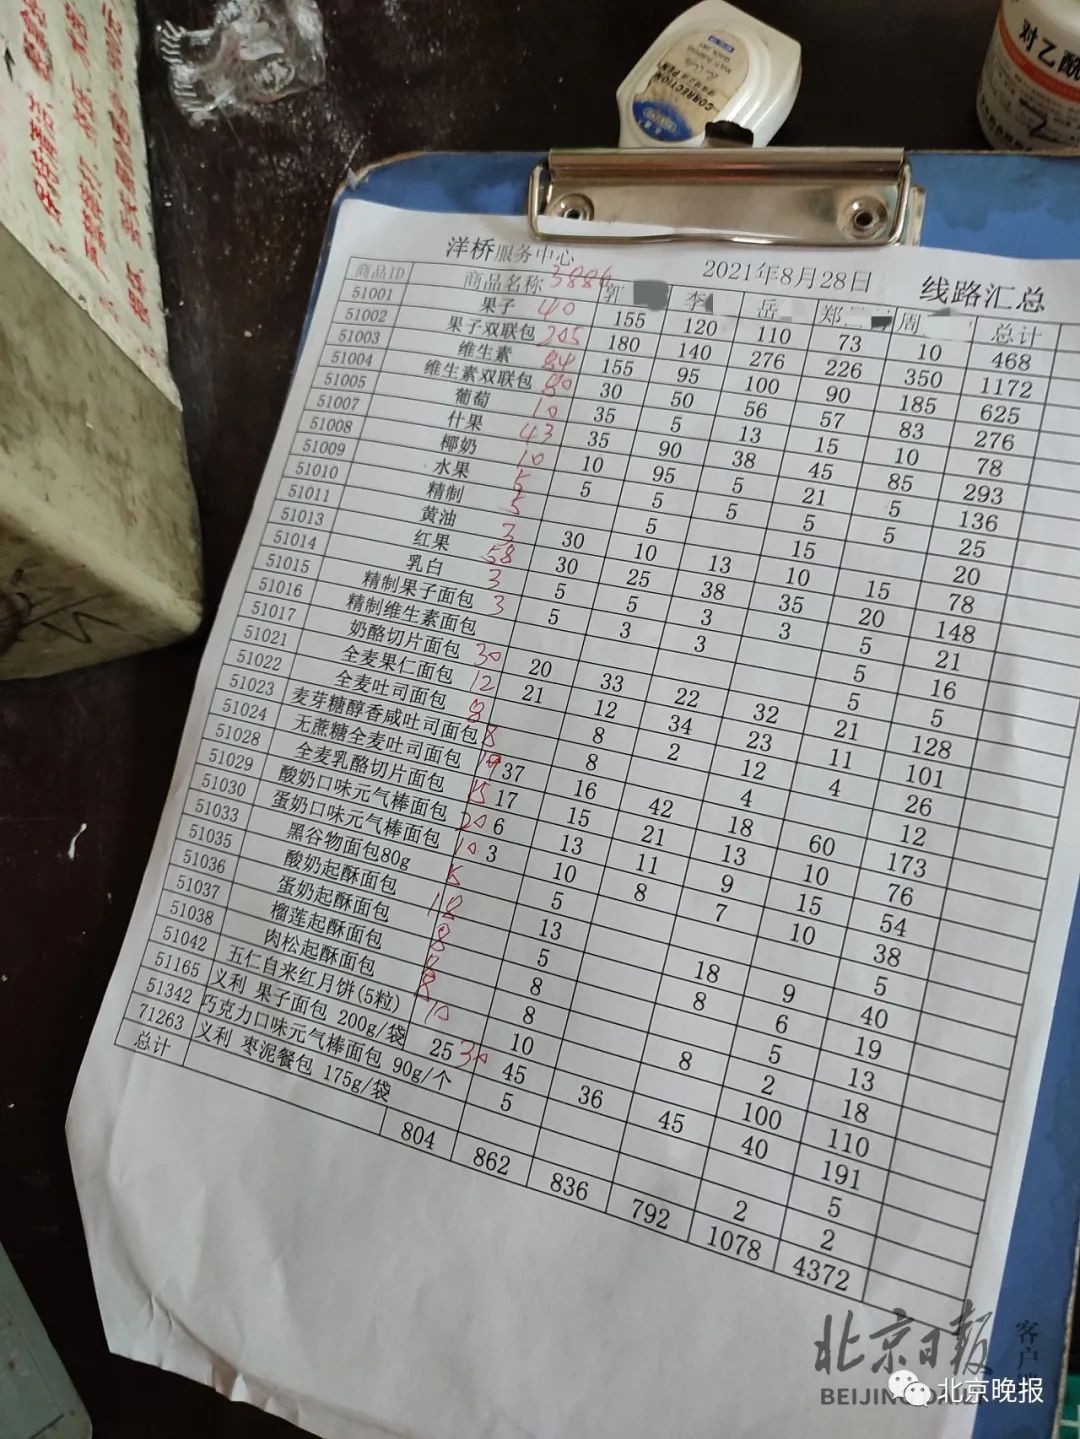 CORRECTION
PEN
对乙酰
洋桥服务中心 2021年8月28日 线路汇总
商品ID 商品名称 3884 郭 李 岳 郑 周 总计
51001 果子 40 155 120 110 73 10 468
51002 果子双联包 205 180 140 276 226 350 1172
51003 维生素 84 155 95 100 90 185 625
51004 维生素双联包 80 30 50 56 57 83 276
51005 葡萄 10 35 5 13 15 10 78
51007 什果 43 35 90 38 45 85 293
51008 椰奶 10 10 95 5 21 5 136
51009 水果 5 5 5 5 5 5 25
51010 精制 5 5 15 20
51011 黄油 3 30 10 13 10 15 78
51013 红果 58 30 25 38 35 20 148
51014 乳白 3 5 5 3 3 5 21
51015 精制果子面包 3 5 3 3 5 16
51016 精制维生素面包 5 5
51017 奶酪切片面包 30 20 33 22 32 21 128
51021 全麦果仁面包 12 21 12 34 23 11 101
51022 全麦吐司面包 8 8 2 12 4 26
51023 麦芽糖醇香咸吐司面包 8 8 4 12
51024 无蔗糖全麦吐司面包 37 16 42 18 60 173
51028 全麦乳酪切片面包 15 17 15 21 13 10 76
51029 酸奶口味元气棒面包 20 6 13 11 9 15 54
51030 蛋奶口味元气棒面包 10 3 10 8 7 10 38
51033 黑谷物面包80g 5 5 5
51035 酸奶起酥面包 18 13 18 9 40
51036 蛋奶起酥面包 8 5 8 6 19
51037 榴莲起酥面包 8 5 13
51038 肉松起酥面包 8 8 8 2 18
51042 五仁自来红月饼(5粒) 10 10 100 110
51165 义利 果子面包 200g/袋 25 30 45 36 45 40 191
51342 巧克力口味元气棒面包 90g/个 5 5
71263 义利 枣泥餐包 175g/袋 2 2
总计 804 862 836 792 1078 4372
北京日报 客户
BEIJING
北京晚报